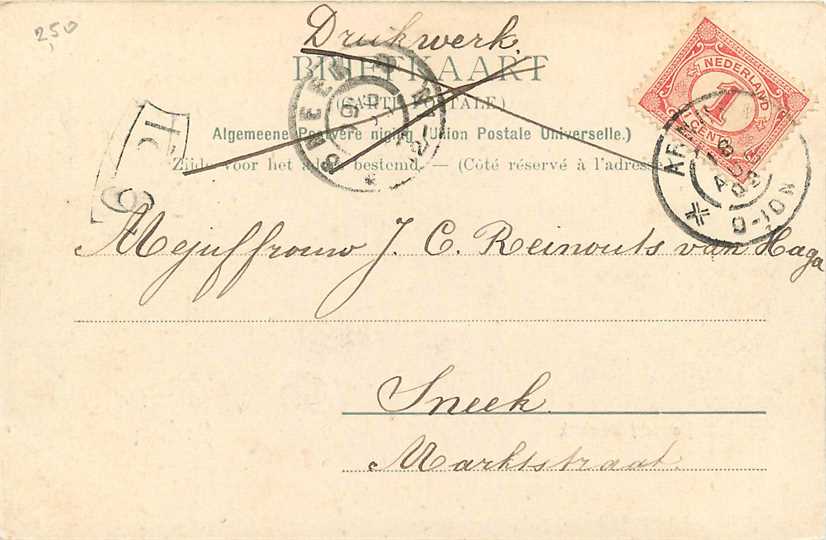 2,50
Drukwerk
BRIEFKAART
(CARTE POSTALE)
Algemeene Postvereniging (Union Postale Universelle.)
Zijde voor het adres bestemd. — (Côté réservé à l'adresse
NEDERLAND
1
CENT
ARNHEM
8
AUG
02
SNEEK
9
Mejuffrouw J. C. Reinouts van Haga
Sneek.
Marktstraat.